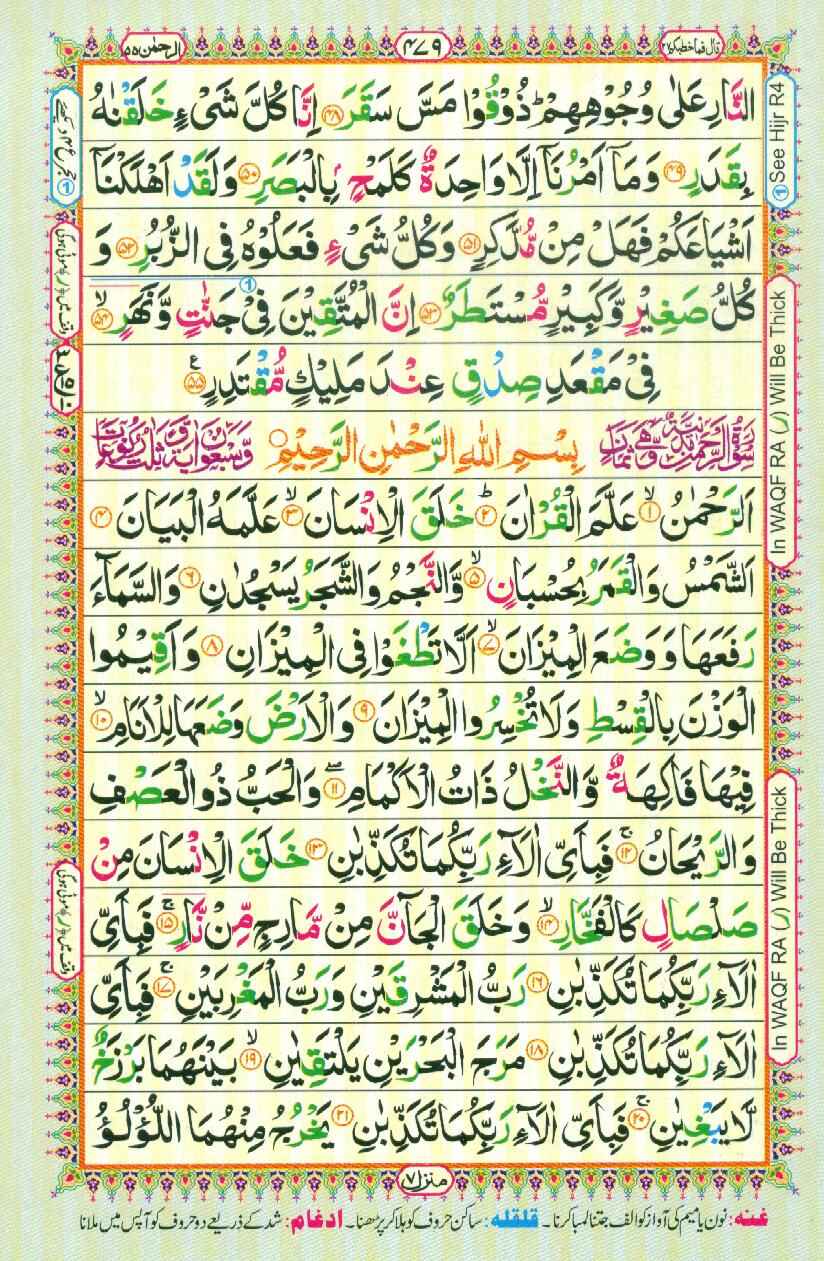 قال فما خطبكم ٢٧
٤٧٩
الرحمٰن ٥٥
النَّارِ عَلٰى وُجُوْهِهِمْ ؕ ذُوْقُوْا مَسَّ سَقَرَ ﴿۴۸﴾ اِنَّا كُلَّ شَىْءٍ خَلَقْنٰهُ
بِقَدَرٍ ﴿۴۹﴾ وَمَاۤ اَمْرُنَاۤ اِلَّا وَاحِدَةٌ كَلَمْحٍۢ بِالْبَصَرِ ﴿۵۰﴾ وَلَقَدْ اَهْلَكْنَاۤ
اَشْيَاعَكُمْ فَهَلْ مِنْ مُّدَّكِرٍ ﴿۵۱﴾ وَكُلُّ شَىْءٍ فَعَلُوْهُ فِى الزُّبُرِ ﴿۵۲﴾ وَ
كُلُّ صَغِيْرٍ وَّكَبِيْرٍ مُّسْتَطَرٌ ﴿۵۳﴾ اِنَّ الْمُتَّقِيْنَ فِىْ جَنّٰتٍ وَّنَهَرٍ ۙ﴿۵۴﴾
فِىْ مَقْعَدِ صِدْقٍ عِنْدَ مَلِيْكٍ مُّقْتَدِرٍ ﴿۵۵﴾ ع
بِسْمِ اللّٰهِ الرَّحْمٰنِ الرَّحِيْمِ
اَلرَّحْمٰنُ ۙ﴿۱﴾ عَلَّمَ الْقُرْاٰنَ ؕ﴿۲﴾ خَلَقَ الْاِنْسَانَ ۙ﴿۳﴾ عَلَّمَهُ الْبَيَانَ ﴿۴﴾
اَلشَّمْسُ وَالْقَمَرُ بِحُسْبَانٍ ۙ﴿۵﴾ وَّالنَّجْمُ وَالشَّجَرُ يَسْجُدٰنِ ﴿۶﴾ وَالسَّمَآءَ
رَفَعَهَا وَوَضَعَ الْمِيْزَانَ ۙ﴿۷﴾ اَلَّا تَطْغَوْا فِى الْمِيْزَانِ ﴿۸﴾ وَاَقِيْمُوا
الْوَزْنَ بِالْقِسْطِ وَلَا تُخْسِرُوا الْمِيْزَانَ ﴿۹﴾ وَالْاَرْضَ وَضَعَهَا لِلْاَنَامِ ۙ﴿۱۰﴾
فِيْهَا فَاكِهَةٌ وَّالنَّخْلُ ذَاتُ الْاَكْمَامِ ۖ﴿۱۱﴾ وَالْحَبُّ ذُو الْعَصْفِ
وَالرَّيْحَانُ ۚ﴿۱۲﴾ فَبِاَىِّ اٰلَآءِ رَبِّكُمَا تُكَذِّبٰنِ ﴿۱۳﴾ خَلَقَ الْاِنْسَانَ مِنْ
صَلْصَالٍ كَالْفَخَّارِ ۙ﴿۱۴﴾ وَخَلَقَ الْجَآنَّ مِنْ مَّارِجٍ مِّنْ نَّارٍ ۚ﴿۱۵﴾ فَبِاَىِّ
اٰلَآءِ رَبِّكُمَا تُكَذِّبٰنِ ﴿۱۶﴾ رَبُّ الْمَشْرِقَيْنِ وَرَبُّ الْمَغْرِبَيْنِ ۚ﴿۱۷﴾ فَبِاَىِّ
اٰلَآءِ رَبِّكُمَا تُكَذِّبٰنِ ﴿۱۸﴾ مَرَجَ الْبَحْرَيْنِ يَلْتَقِيٰنِ ۙ﴿۱۹﴾ بَيْنَهُمَا بَرْزَخٌ
لَّا يَبْغِيٰنِ ۚ﴿۲۰﴾ فَبِاَىِّ اٰلَآءِ رَبِّكُمَا تُكَذِّبٰنِ ﴿۲۱﴾ يَخْرُجُ مِنْهُمَا اللُّؤْلُؤُ
① See Hijr R4
In WAQF RA (ر) Will Be Thick
In WAQF RA (ر) Will Be Thick
وقف میں (ر) موٹی ہوگی
وقف میں (ر) موٹی ہوگی
منزل ٧
غنه: نون یا میم کی آواز کو الف جتنا لمبا کرنا۔ قلقله: ساکن حروف کو ہلا کر پڑھنا۔ ادغام: شد کے ذریعے دو حروف کو آپس میں ملانا